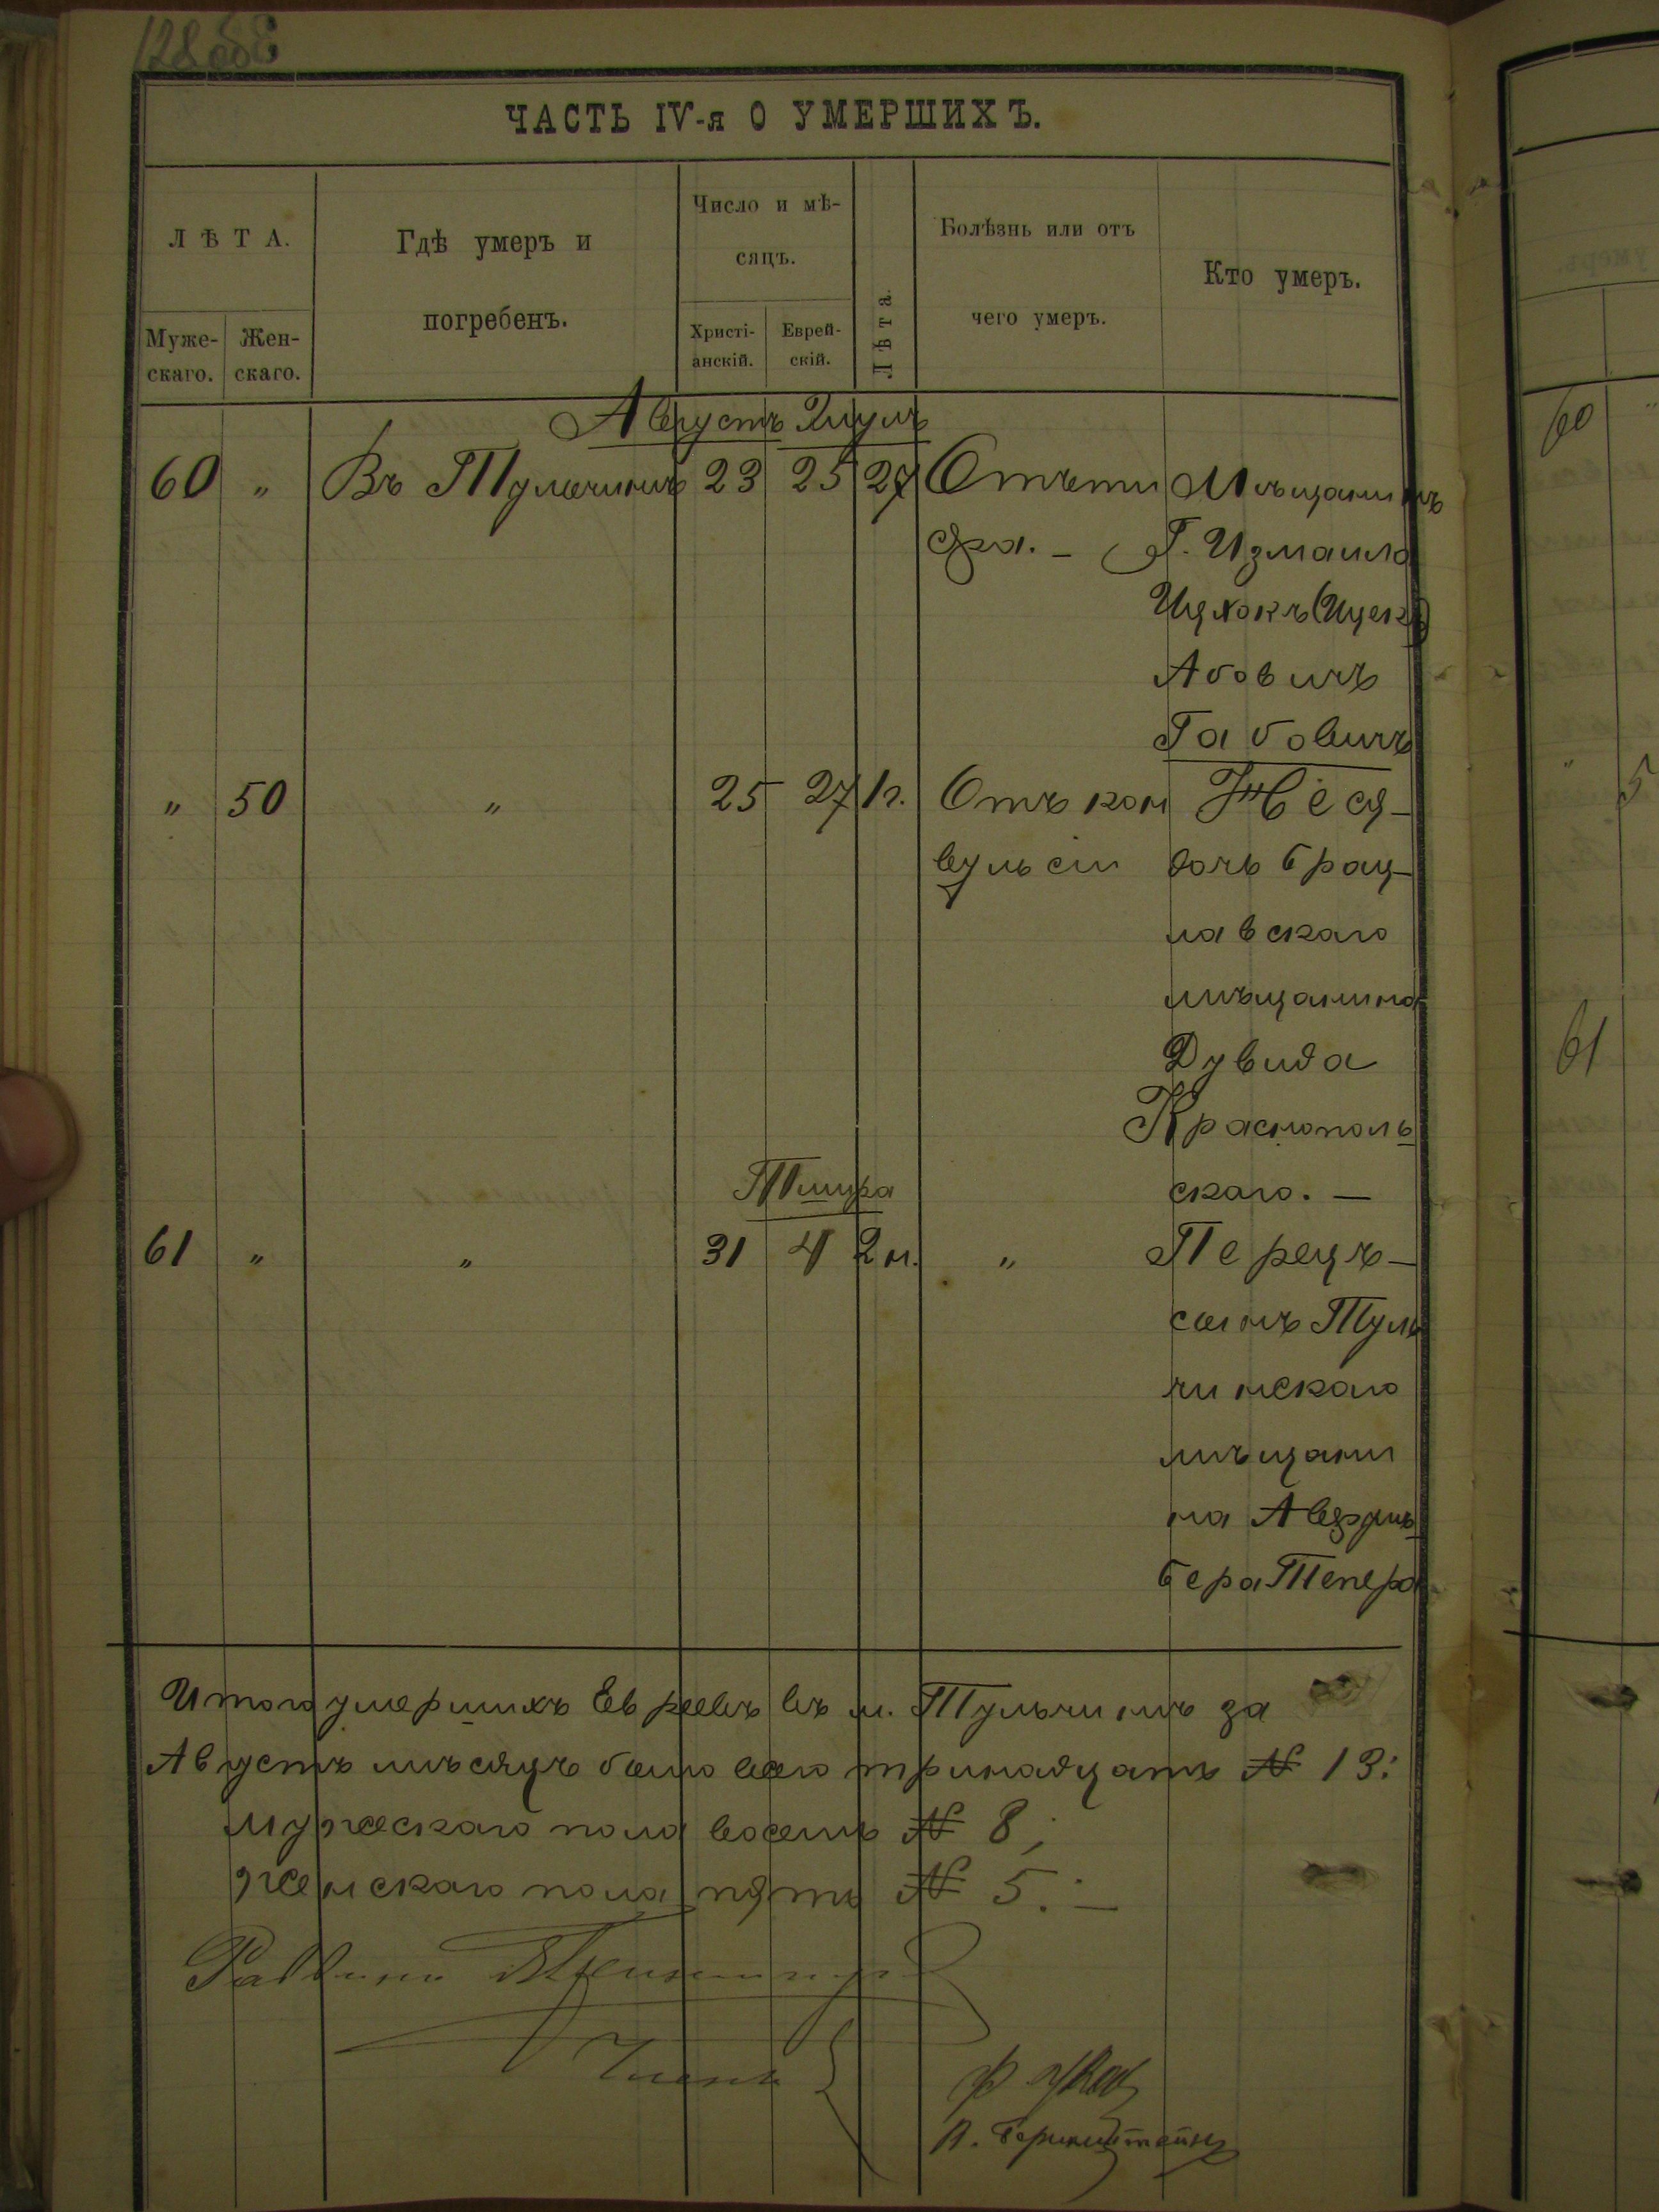 128 об
ЧАСТЬ IV-я О УМЕРШИХЪ.
ЛѢТА.
Муже-
скаго.
Жен-
скаго.
Гдѣ умеръ и
погребенъ.
Число и мѣ-
сяцъ.
Христі-
анскій.
Еврей-
скій.
Лѣта.
Болѣзнь или отъ
чего умеръ.
Кто умеръ.
Августъ Элулъ
60 " Въ Тульчинѣ 23 25 27 Отъ ти Мѣщанинъ
фа. — Г. Измаила
Ицхокъ (Ицекъ)
Абовичъ
Габовичъ
" 50 " 25 27 1 г. Отъ кон Эся —
вульсіи дочь брац-
лавскаго
мѣщанина
Дувида
Краснополь
Тишра скаго. —
61 " " 31 4 2 м. " Перецъ —
сынъ Туль
чинскаго
мѣщани
на
бера Тепера
Итого умершихъ Евреевъ въ м. Тульчинѣ за
Августъ мѣсяцъ было всего тринадцать № 13:
мужескаго пола восемь № 8;
женскаго пола пять № 5. —
Раввинъ
Члены
А. Бернштейнъ
60
"
5
61